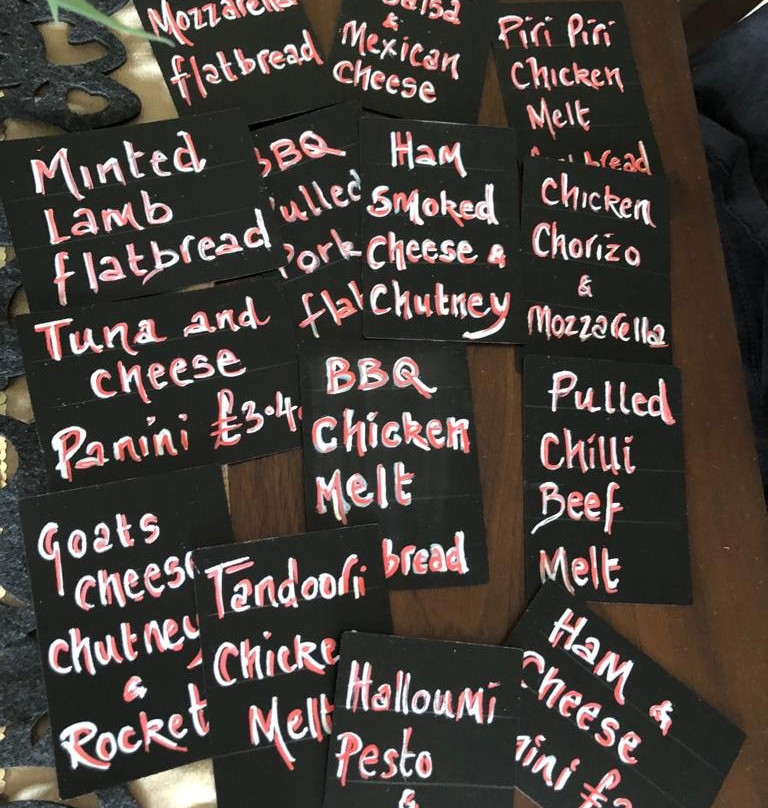 Mozzarella
flatbread
Salsa
&
Mexican
Cheese
Piri Piri
Chicken
Melt
Minted
Lamb
flatbread
BBQ
Pork
Ham
Smoked
Cheese &
Chutney
Chicken
Chorizo
&
Mozzarella
Tuna and
cheese
Panini £3.4
BBQ
Chicken
Melt
bread
Pulled
Chilli
Beef
Melt
Goats
Chees
Chutney
&
Rocket
Tandoori
Chicke
Melt
Halloumi
Pesto
&
Ham &
Cheese